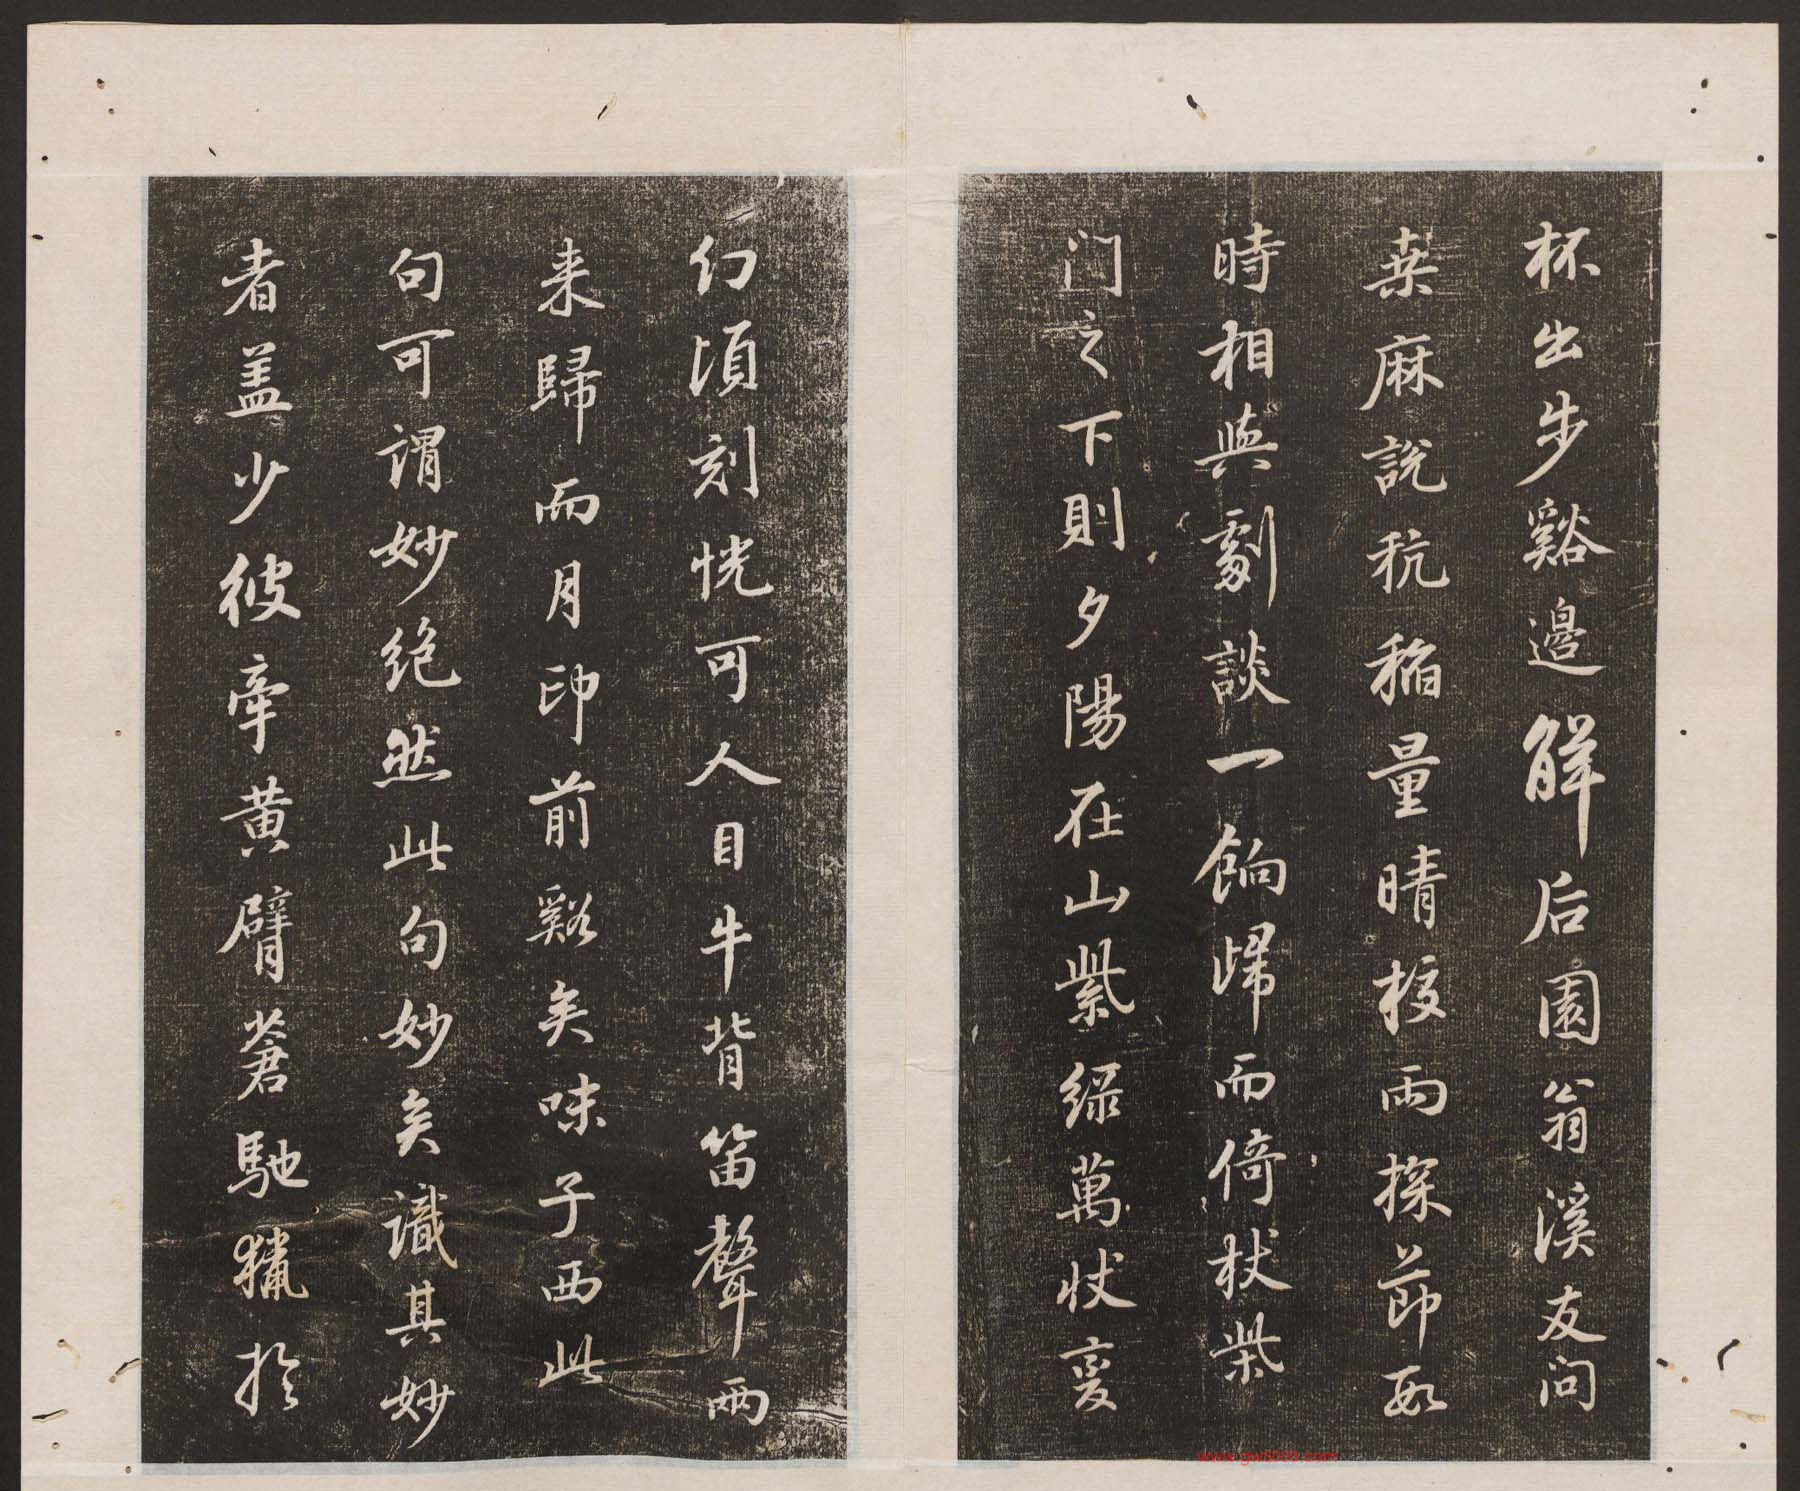 杯出步谿邊解后園翁溪友问
桒麻說秔稻量晴挍雨探莭數
時相與劇談一餉歸而倚杖柴
门之下則夕陽在山紫緑萬狀變
幻頃刻恍可人目牛背笛聲兩
来歸而月印前谿矣味子西此
句可謂妙绝然此句妙矣識其妙
者盖少彼牽黄臂蒼馳獵於
www.gw5000.com